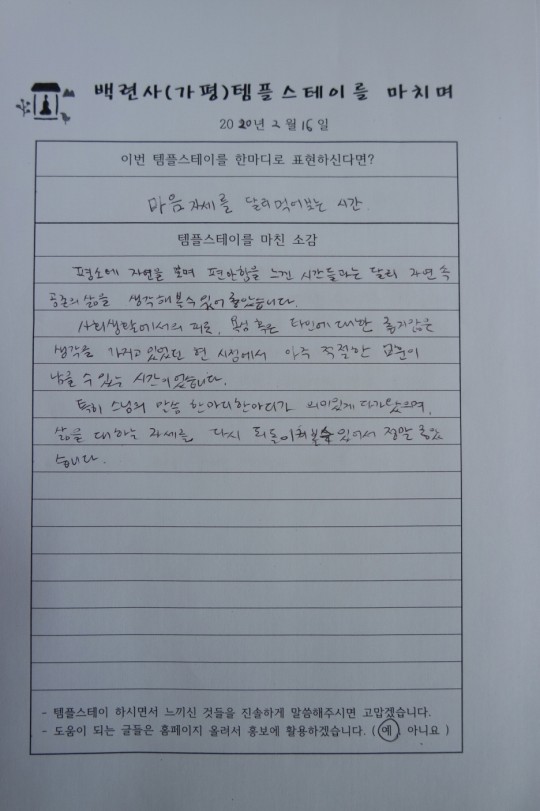 백련사(가평)템플스테이를 마치며
2020년 2월 16일
이번 템플스테이를 한마디로 표현하신다면?
마음자세를 달리먹어보는 시간
템플스테이를 마친 소감
평소에 자연을 보며 편안함을 느낀 시간들과는 달리 자연 속
공존의 삶을 생각해볼수있어 좋았습니다.
사회생활에서의 피로, 욕심 혹은 타인에 대한 좋지않은
생각을 가지고 있었던 현 시점에서 아주 적절한 교훈이
남을 수 있는 시간이었습니다.
특히 스님의 말씀 한마디한마디가 의미있게 다가왔으며,
삶을 대하는 자세를 다시 되돌이켜볼수있어서 정말 좋았
습니다.
- 템플스테이 하시면서 느끼신 것들을 진솔하게 말씀해주시면 고맙겠습니다.
- 도움이 되는 글들은 홈페이지 올려서 홍보에 활용하겠습니다. ( 예 . 아니요 )